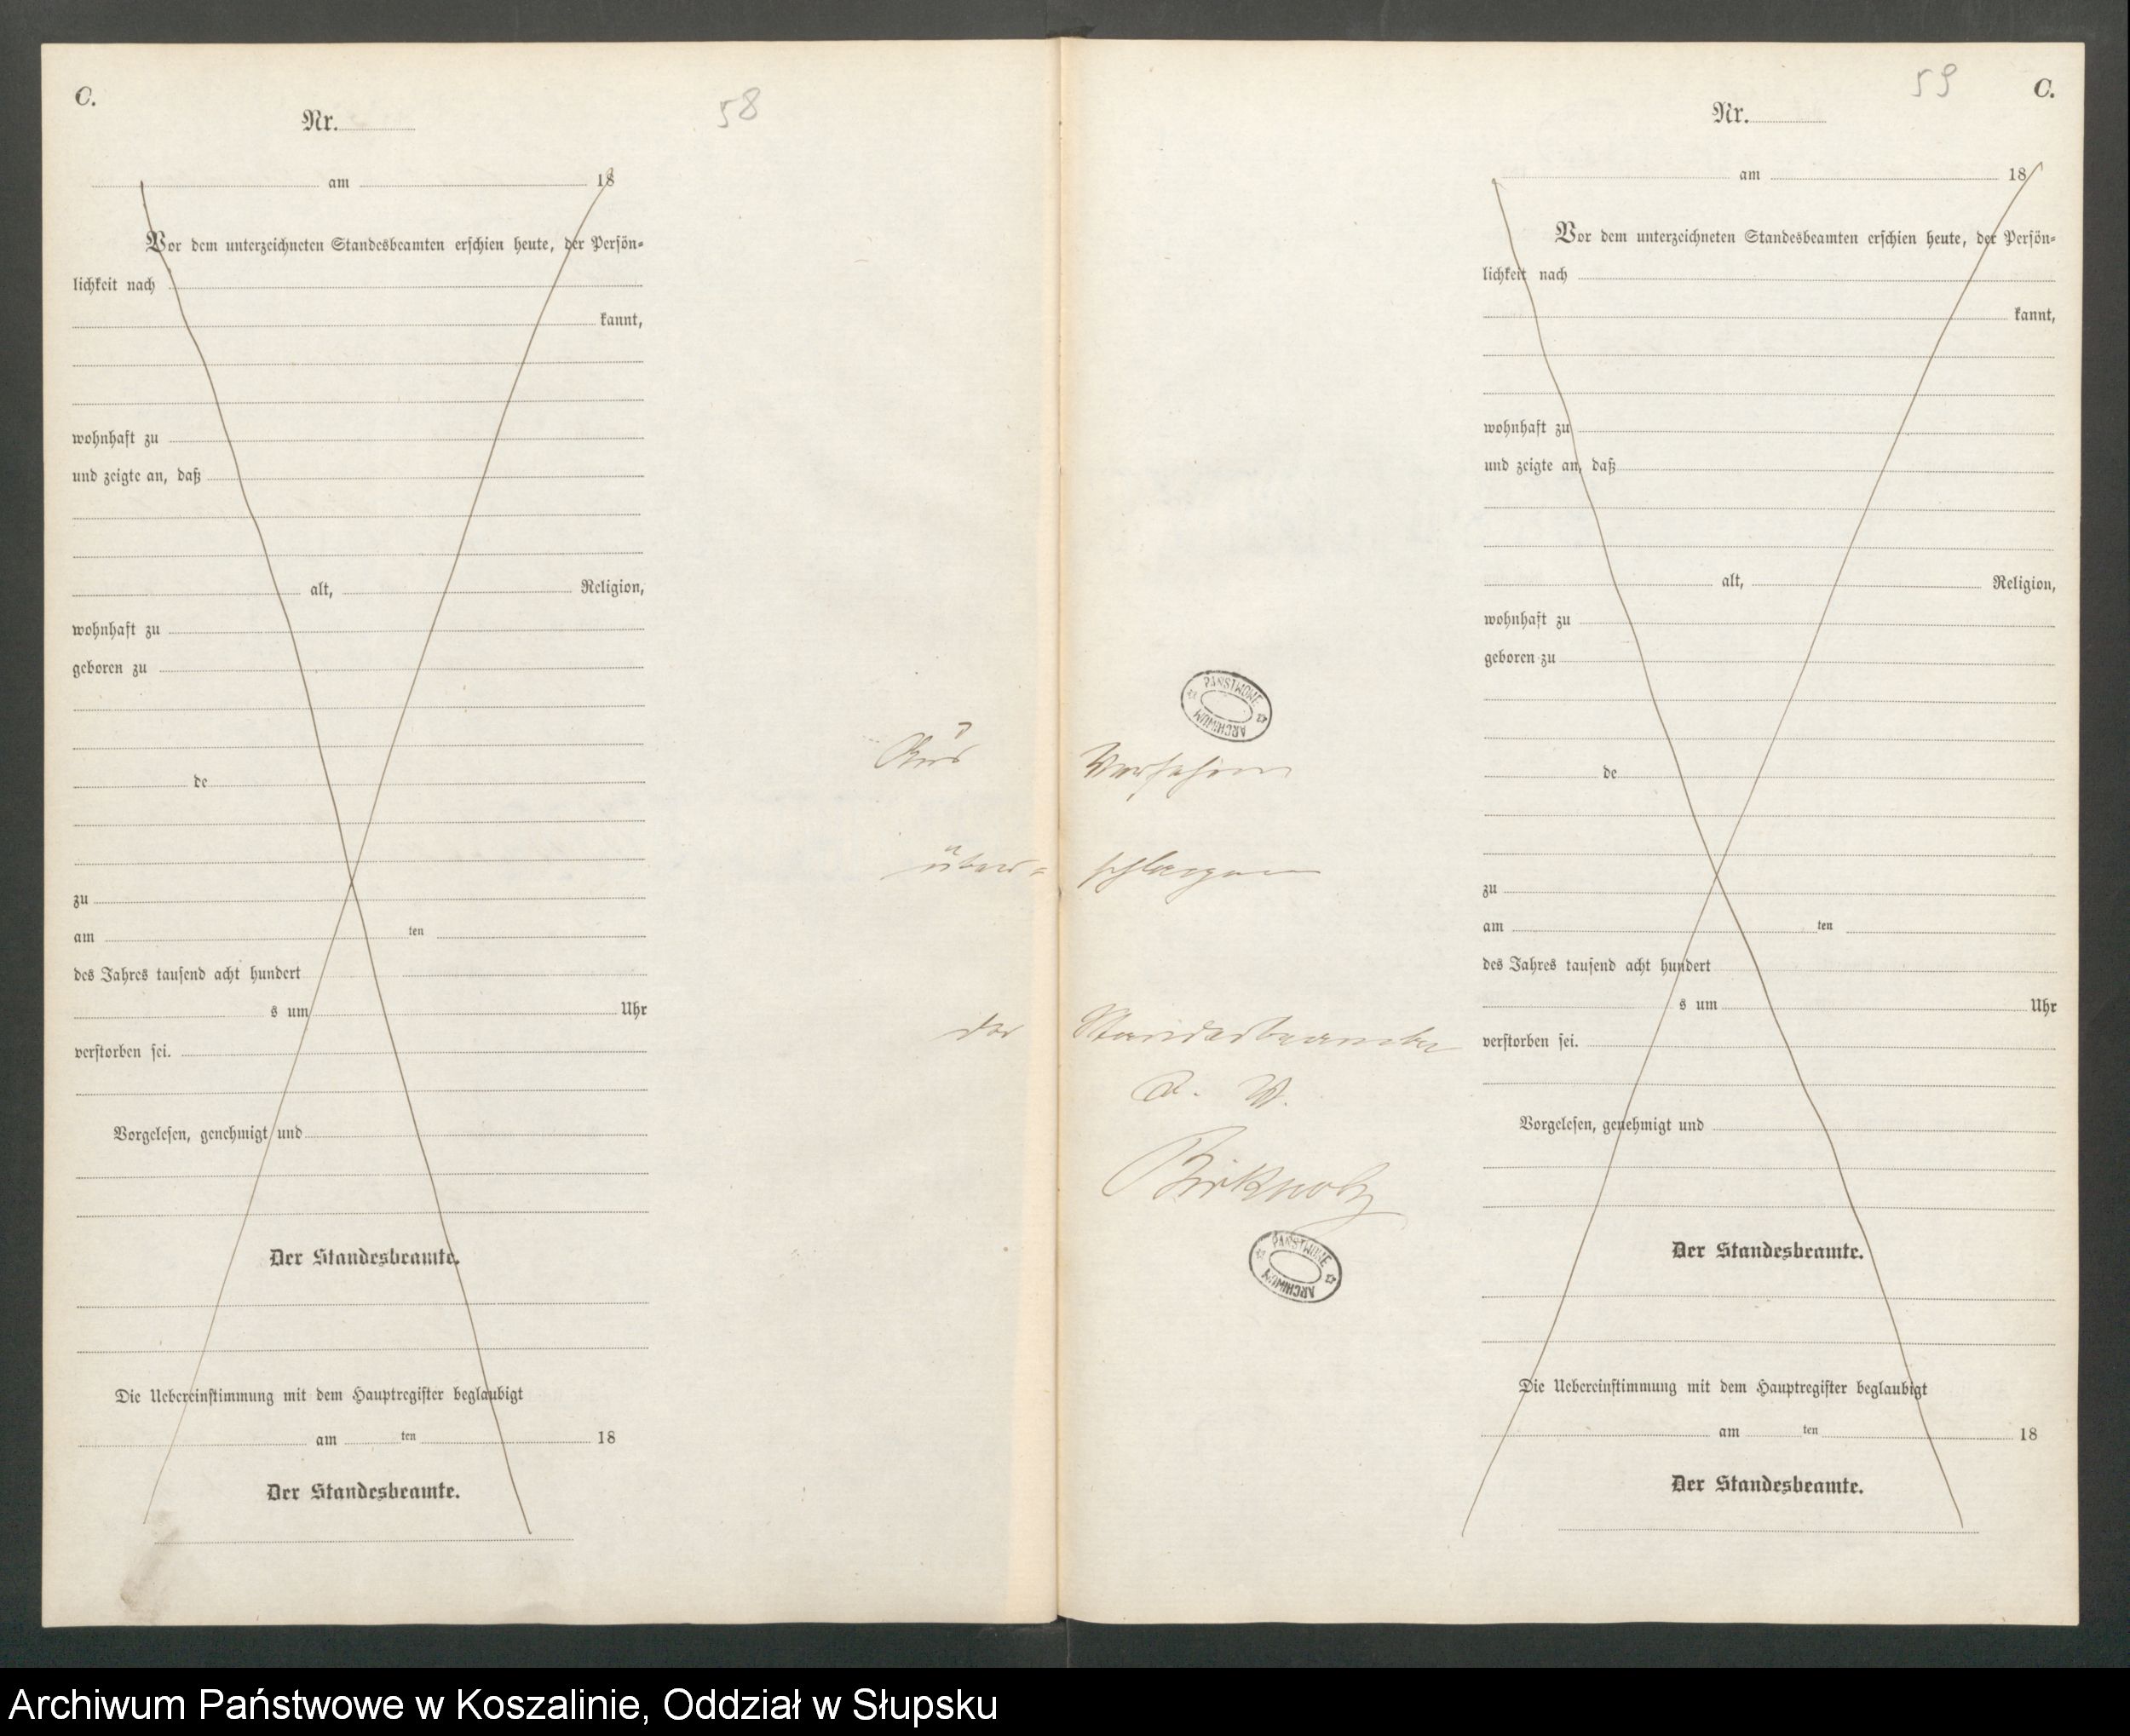 C.
58
Nr.
am 18
Vor dem unterzeichneten Standesbeamten erschien heute, der Persön-
lichkeit nach
kannt,
wohnhaft zu
und zeigte an, daß
alt, Religion,
wohnhaft zu
geboren zu
de
zu
am ten
des Jahres tausend acht hundert
s um Uhr
verstorben sei.
Vorgelesen, genehmigt und
Der Standesbeamte.
Die Uebereinstimmung mit dem Hauptregister beglaubigt
am ten 18
Der Standesbeamte.
PAŃSTWOWE ARCHIWUM
Aus Versehen
über= schlagen
der Standesbeamte
PAŃSTWOWE ARCHIWUM
59
C.
Nr.
am 18
Vor dem unterzeichneten Standesbeamten erschien heute, der Persön-
lichkeit nach
kannt,
wohnhaft zu
und zeigte an, daß
alt, Religion,
wohnhaft zu
geboren zu
de
zu
am ten
des Jahres tausend acht hundert
s um Uhr
verstorben sei.
Vorgelesen, genehmigt und
Der Standesbeamte.
Die Uebereinstimmung mit dem Hauptregister beglaubigt
am ten 18
Der Standesbeamte.
Archiwum Państwowe w Koszalinie, Oddział w Słupsku